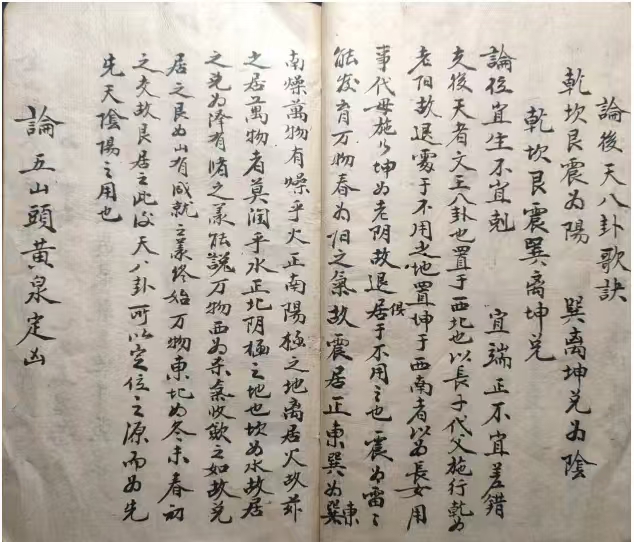 論後天八卦歌訣
乾坎艮震為陽　巽离坤兌为陰
乾坎艮震巽离坤兌
論後宜生不宜剋　宜端正不宜差錯
夫後天者文王八卦也置于西北也以長子代父施行乾为
老阳故退處于不用之地置坤于西南者以为長女用
事代母施以坤为老阴故退俱居于不用之也震为雷之
能发育万物春为旧之氣故震居正東巽为巽東
南燥萬物有燥乎火正南陽極之地离居火玖茲
之居萬物者莫潤乎水正北阴極之地也坎为水故居
之兌为澤有诸之义能說万物西为柔氣收歛之如故兌
居之艮为山有成就之义終始万物東北为冬未春初
之交故艮居之此後天八卦可以定位之源而为先
先天陰陽之用也
論五山頭黄泉定凶